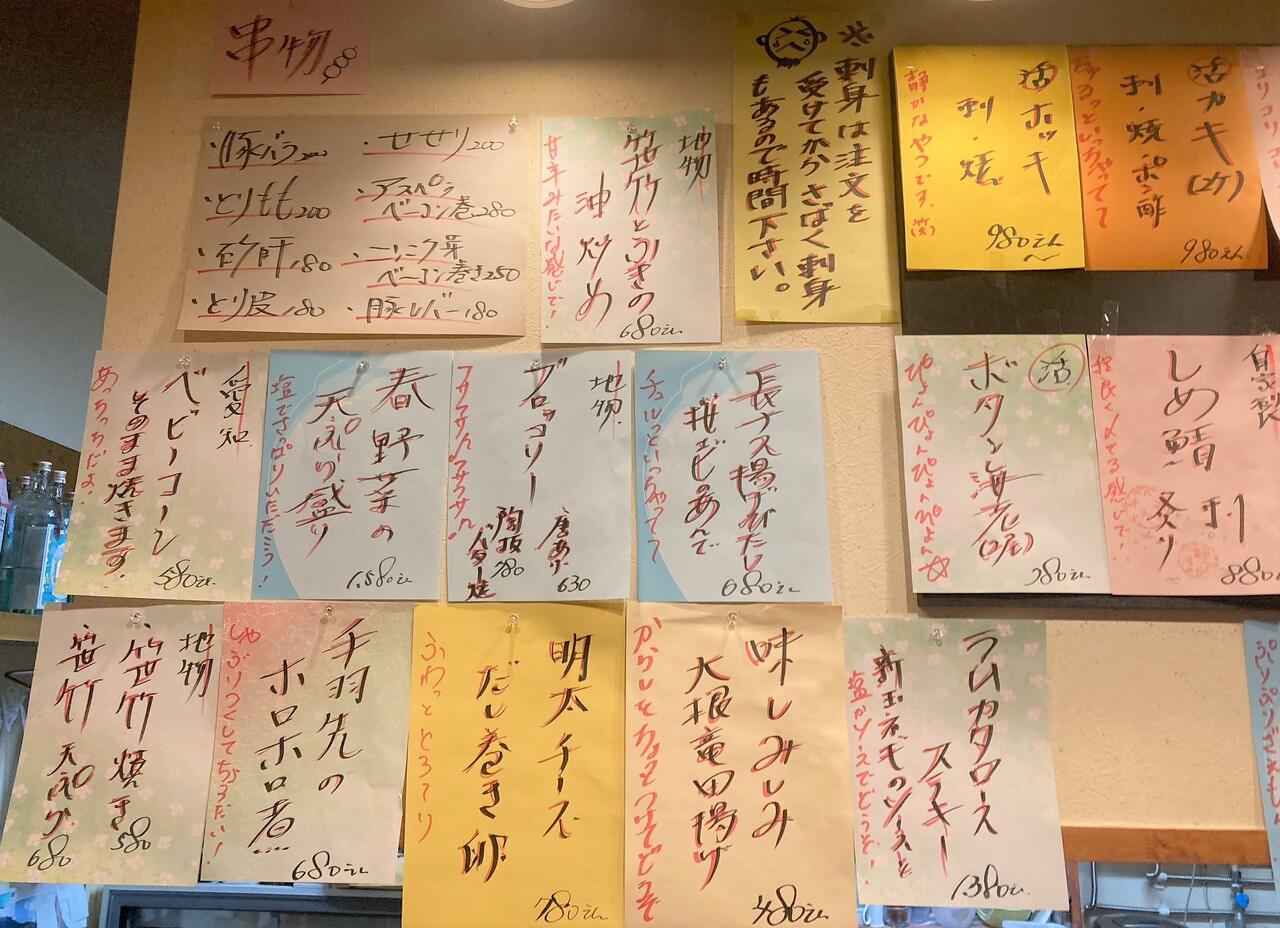 串物
・豚バラ200
・とりもも200
・砂肝180
・とり皮180
・せせり200
・アスパラ
ベーコン巻280
・ニンニク芽
ベーコン巻き250
・豚レバー180
地物
笹竹とふきの
油炒め
甘辛みたいな感じで!
680えん
※刺身は注文を
受けてからさばく刺身
もあるので時間下さい。
活ホッキ
刺・焼
静かなやつです。(笑)
980えん
活カキ(2ケ)
刺・焼・ポン酢
ちゅるっといっちゃって
980えん
コリコリコリ
愛知
ベビーコーン
そのまま焼きます。
あっちっちだよ!
580えん
春野菜の
天ぷら盛り
塩でさっぱりいただこう!
1.580えん
地物
ブロッコリー
唐あげ
630
陶板
バター焼
780
フサフササン!フサフサン!
長ナス揚げびたし
桜エビのあんで
チュルっといっちゃって
680えん
活
ボタン海老(2尾)
ぴょんぴょんぴょんぴょん☆
980えん
自家製
しめ鯖 刺
炙り
程良く〆てる感じで!
880
地物
笹竹焼き
580
笹竹 天ぷら
680
手羽先の
ホロホロ煮
しゃぶりつくしてちょうだい!
680えん
明太チーズ
だし巻き卵
ふわっととろ〜り
780えん
味しみしみ
大根竜田揚げ
からしをちょっとつけてどうぞ
480えん
ラムカタロース
ステーキ
新玉ネギのソースと
塩かソースでどうぞ!
1380えん